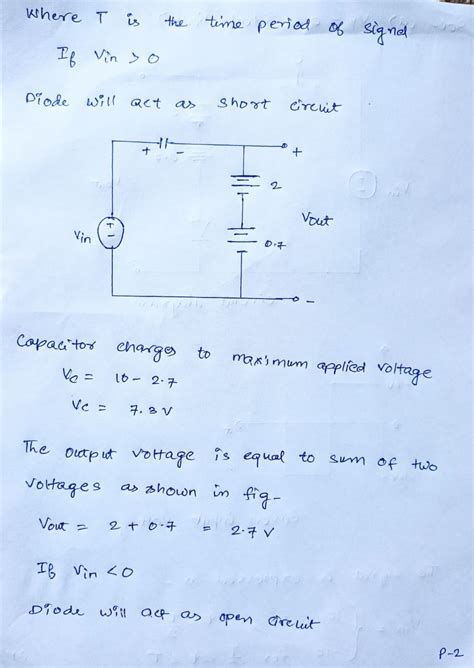 where T is the time period of signal
If Vin > 0
Diode will act as short circuit
+ - +
2
Vout
Vin + -
0.7
-
Capacitor charges to maximum applied voltage
Vc = 10 - 2.7
Vc = 7.3 V
The output voltage is equal to sum of two
voltages as shown in fig-
Vout = 2 + 0.7 = 2.7 V
If Vin < 0
Diode will act as open circuit
P-2